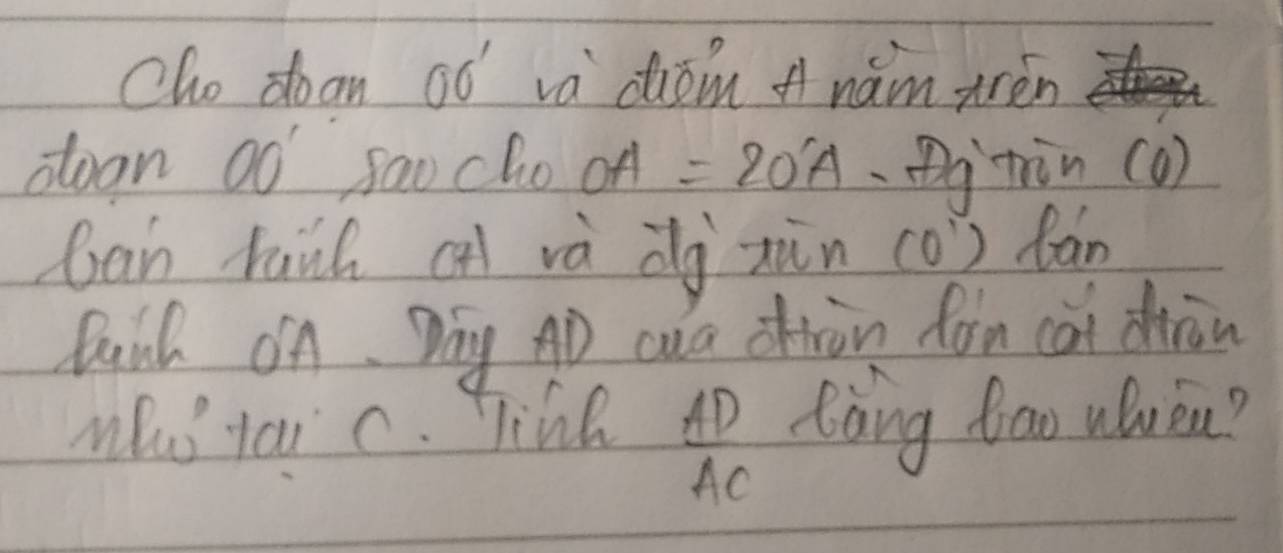 Cho đoạn OO' và điểm A nằm trên
đoạn OO' sao cho OA = 2O'A. Đg tròn (O)
bán kính OA và đg tròn (O') bán
kính O'A. Dây AD của đtròn lớn cắt đtròn
nhỏ tại C. Tính AD/AC bằng bao nhiêu?